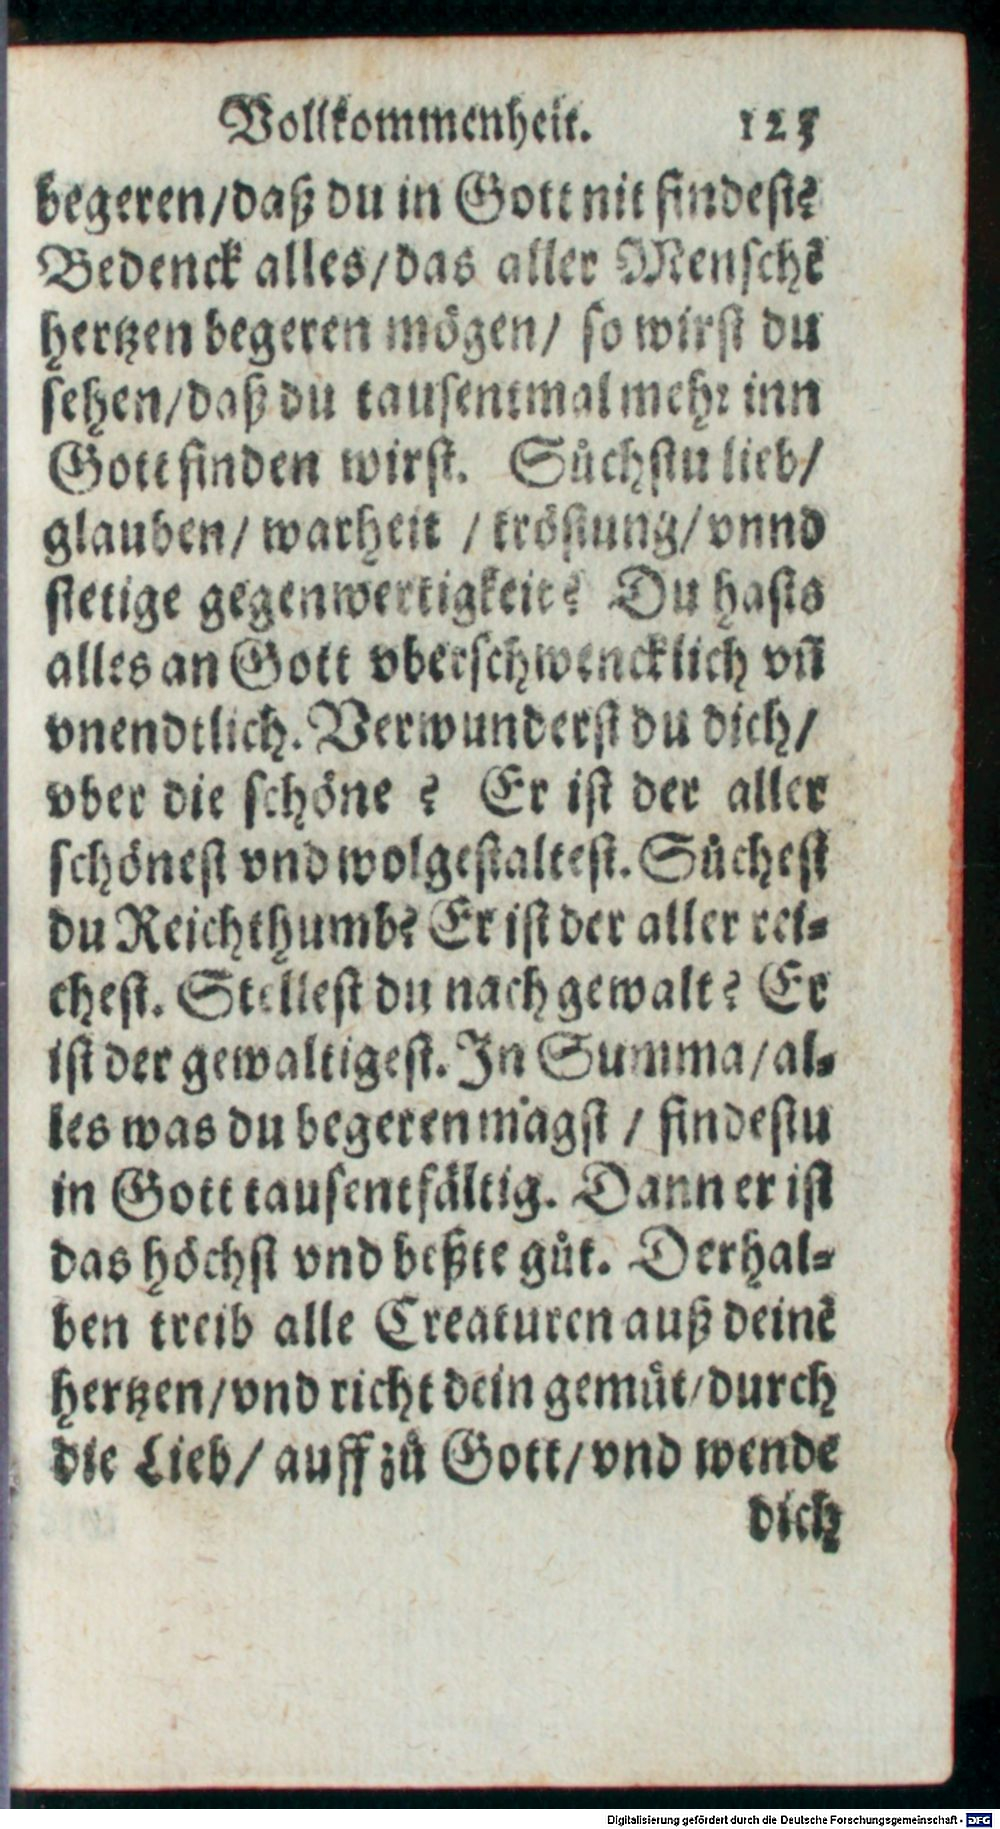 Vollkommenheit. 123
begeren/daß du in Gott nit findest?
Bedenck alles/das aller Menschẽ
hertzen begeren mögen/ so wirst du
sehen/daß du tausentmal mehr inn
Gott finden wirst. Sůchstu lieb/
glauben/ warheit / tröstung/ vnnd
stetige gegenwertigkeit? Du hasts
alles an Gott vberschwencklich vñ
vnendtlich. Verwunderst du dich/
vber die schöne ? Er ist der aller
schönest vnd wolgestaltest. Sůchest
du Reichthumb? Er ist der aller rei-
chest. Stellest du nach gewalt? Er
ist der gewaltigest. In Summa/al-
les was du begeren magst / findestu
in Gott tausentfältig. Dann er ist
das höchst vnd beßte gůt. Derhal-
ben treib alle Creaturen auß deinẽ
hertzen/vnd richt dein gemüt/durch
die Lieb/ auff zů Gott/vnd wende
dich
Digitalisierung gefördert durch die Deutsche Forschungsgemeinschaft - DFG